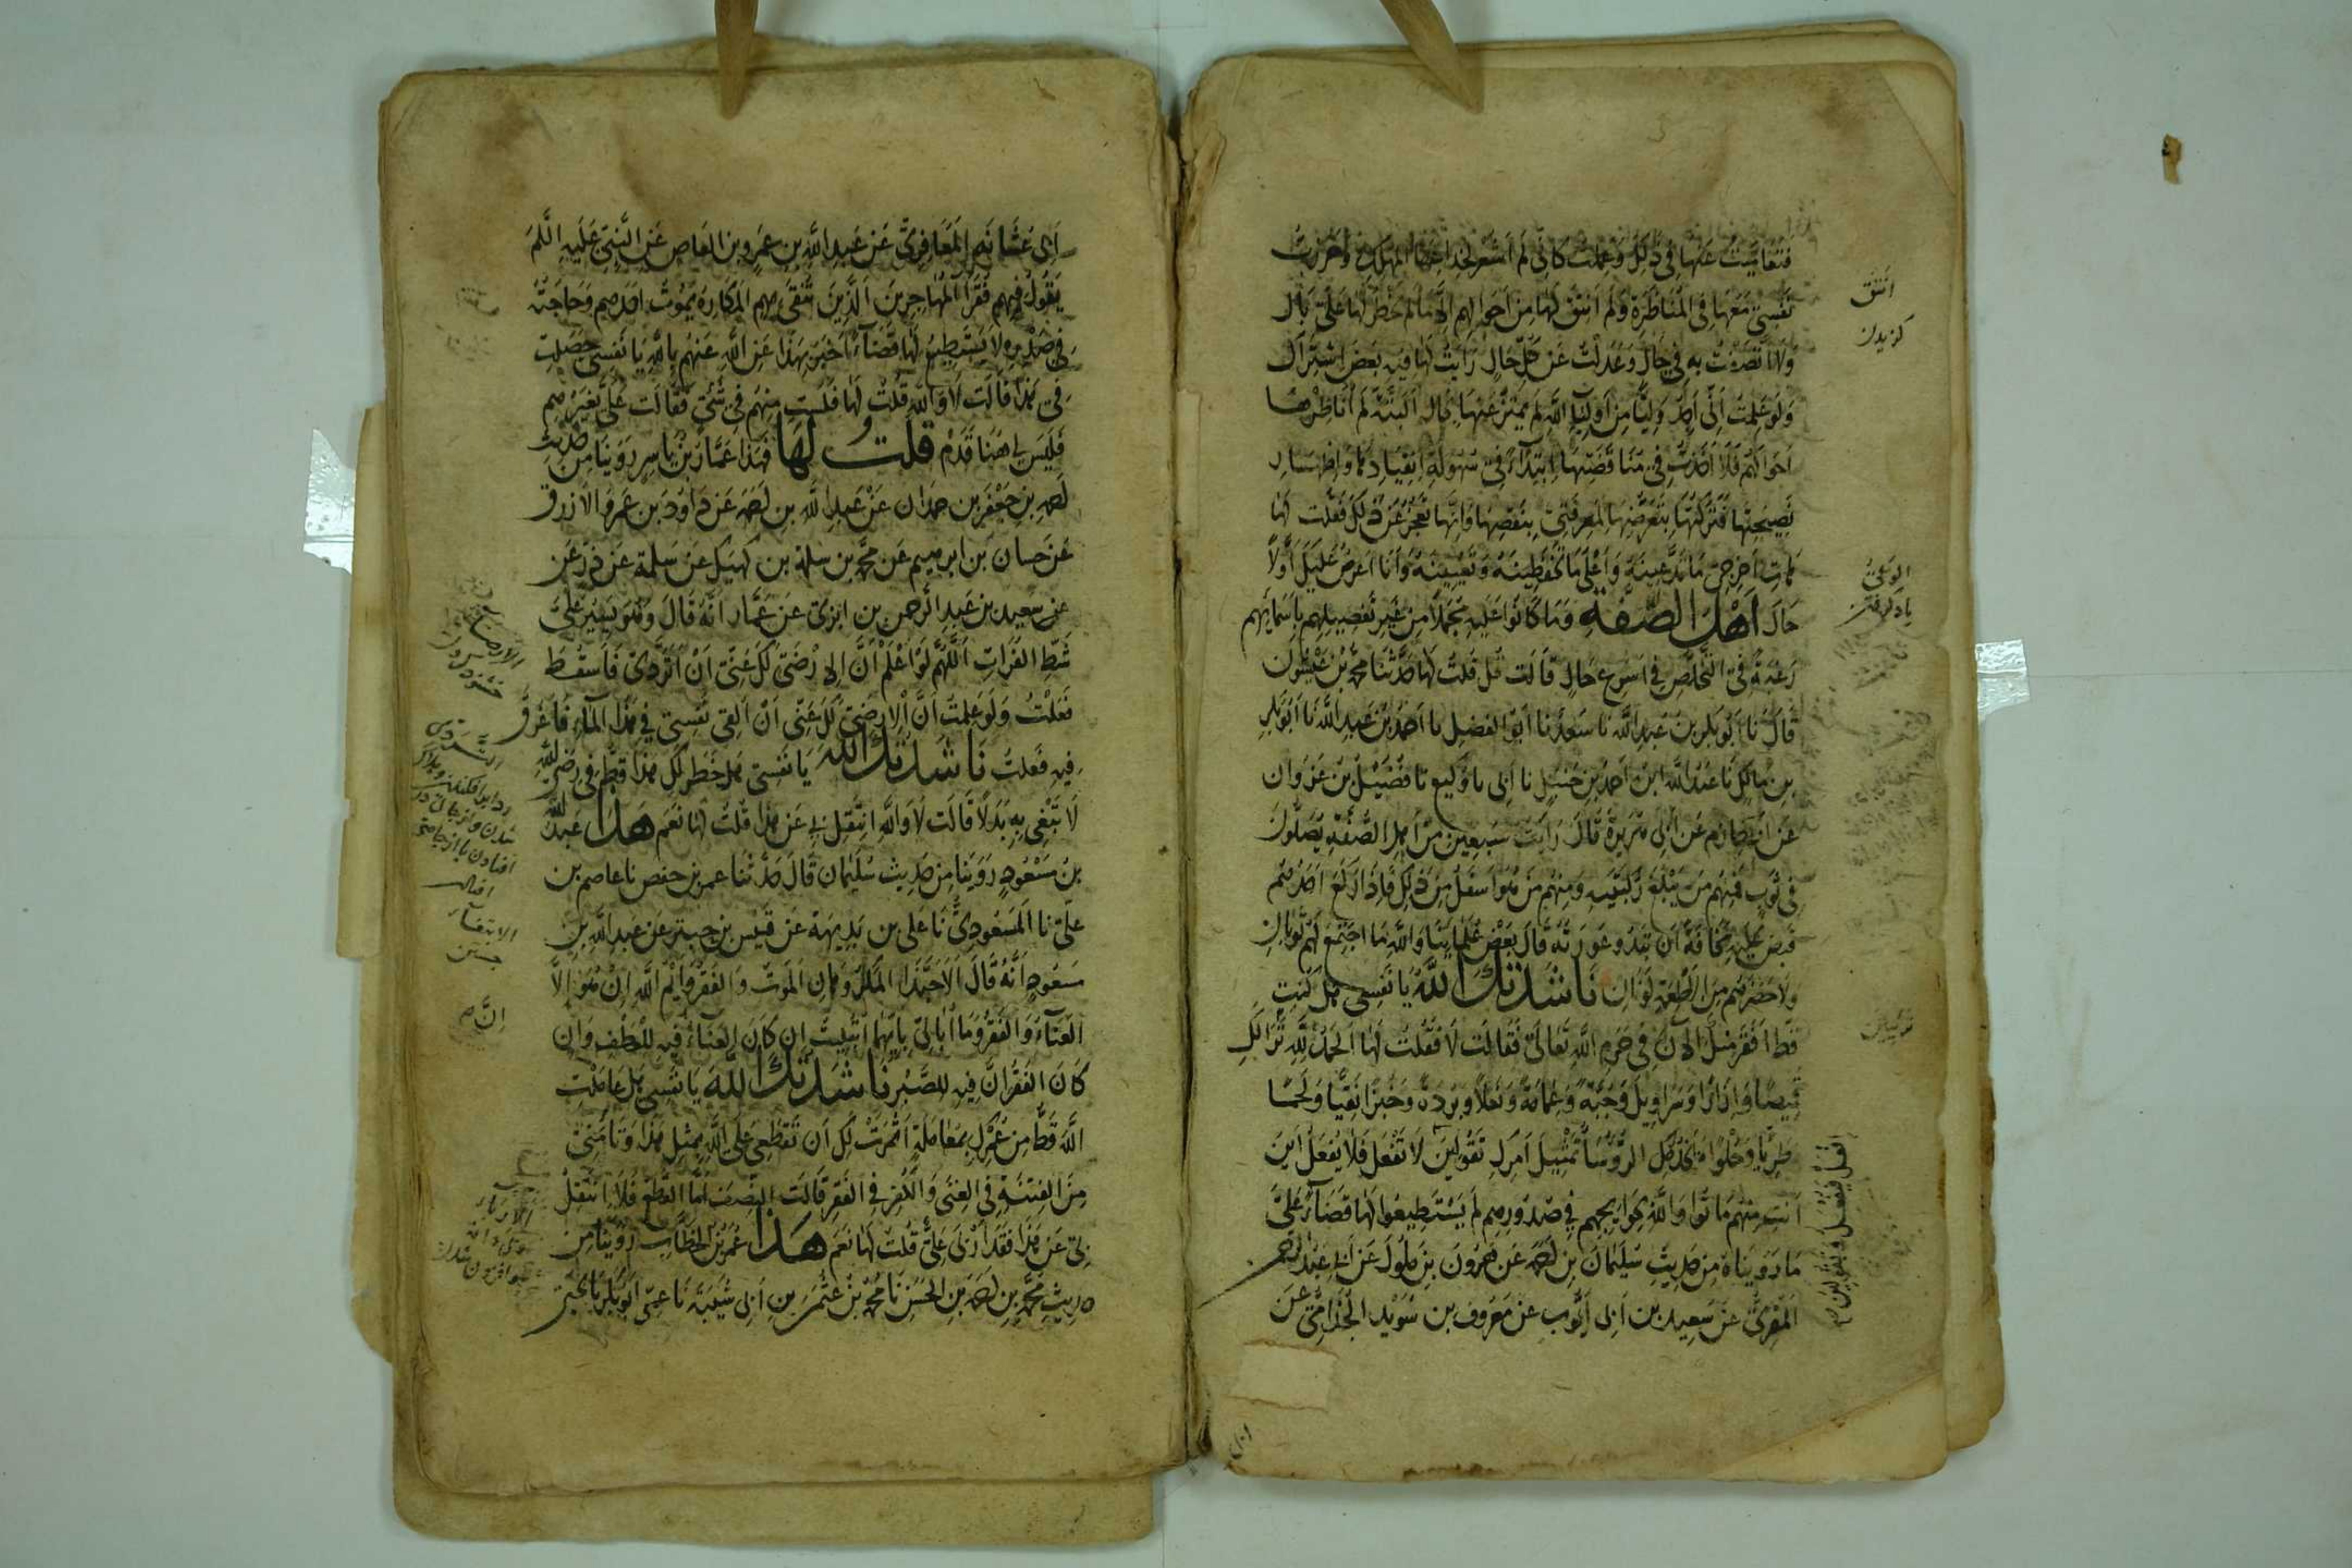 فتعاميت عنها في ذلك وعملت كاني لم اشعر
نفسي معها في المناظرة ولم انتق لها من احوالهم الا ما لم خطر لها على بال
ولانا تصدت به في حال وعدلت عن كل حال رايت لها فيه بعض اشتراك
ولو علمت ان احد وليا من اولياء الله لم يميز عنها بحال البتة لم اناظرها
احوالهم فلا اخذت في مناقضتها ابتداء في سهولة انقيادها واظهار
نصيحتها فتركتها بتعرضها لمعرفتي بنقصها وانها تعجز عن ذلك فقلت لها
هات اخرجي ما تدعينه واعلى ما تحفظينه وتعيينه وانا اعرض عليك اولا
حال اهل الصفة وما كانوا عليه مجملا من غير تفصيلهم باسمايهم
رغبة في التخلص في اسرع حال قالت قل قلت لها حدثنا محمد بن
قال نا ابو بكر بن عبد الله نا سعد نا ابو الفضل نا احمد بن عبد الله نا ابو بكر
بن مالك نا عبد الله ابن احمد بن حنبل نا ابى نا وكيع نا فضيل بن غزوان
عن ابي حازم عن ابى هريرة قال رايت سبعين من اهل الصفة يصلون
في ثوب فمنهم من يبلغ ركبتيه ومنهم من هو اسفل من ذلك فاذا ركع احدهم
قبض عليه مخافة ان تبدو عورته قال بعض علماينا والله ما اجتمع لهم ثوبان
ولا حضرهم من الاطعمة لونان ناشدتك الله يا نفسي هل كنت
قط افقر مثل الآن في حرم الله تعالى فقالت لا فقلت لها الحمد لله ترى لك
قميصا وازارا وسراويل وجبة وعمامة ونعلا وبردة وخبزا نقيا ولحما
طريا وحلواء تخذ لك الرؤساء تمثيل امرك تقولين لا تفعل فلا يفعل اين
انت منهم ماتوا والله بحوايجهم في صدورهم لم يستطيعوا لها قضاء على
ما رويناه من حديث سليمان بن احمد عن هرون بن ملول عن ابي عبد الرحمن
المقرئ عن سعيد بن ابى ايوب عن معروف بن سويد الجذامي عن
انتق
كزيدن
الوعى
ياد كرفتن
ابى عشانة المعافري عن عبد الله بن عمرو بن العاص عن النبي عليه السلم
يقول فيهم فقرا المهاجرين الذين تتقى بهم المكاره يموت احدهم وحاجته
في صدره لا يستطيع لها قضاء اخبر بهذا عن الله عنهم بالله يا نفسي حصلت
في هذا قالت لا والله قلت لها فلست منهم في شئ فقالت على بغيرهم
فليس لي هنا قدم قلت لها فهذا عمار بن ياسر روينا من حديث
احمد بن جعفر بن حمدان عن عبد الله بن احمد عن داود بن عمرو الازرق
عن حسان بن ابرهيم عن محمد بن سلمة بن كهيل عن سلمة عن ذر عن
عن سعيد بن عبد الرحمن بن ابزى عن عمار انه قال وهو يسير على
شط الفرات اللهم لو اعلم ان ارضى لك عني ان اتردى فاسقط
فعلت ولو علمت ان الارضى لك عني ان القى نفسي في هذا الماء فاغرق
فيه فعلت ناشدتك الله يا نفسي هل خطر لك هذا قط في رضى الله
لا تبغي به بدلا قالت لا والله انتقل بي عن هذا قلت لها نعم هذا عبد الله
بن مسعود روينا من حديث سليمان قال حدثنا عمر بن حفص نا عاصم بن
علي نا المسعودي نا علي بن بذيمة عن قيس بن حبتر عن عبد الله بن
مسعود انه قال الا حبذا المكروهان الموت والفقر وايم الله ان هو الا
الغناء والفقر وما ابالى بايهما ابتليت ان كان الغناء فيه للعطف وان
كان الفقر ان فيه للصبر ناشدتك الله يا نفسي هل عاملت
الله قط من عمرك بمعاملة اثمرت لك ان تقطعي على الله بمثل هذا وتامني
من الفتنة في الغنى والكفر في الفقر قالت النصف اما القطع فلا انتقل
بي عن هذا فقد ارى على قلت لها نعم هذا عمر بن الخطاب روينا من
حديث محمد بن احمد بن الحسن نا محمد بن عثمن بن ابى شيبة نا عمى ابو بكر نا
الارضاء
خشنود
التردى
افتادن
الابتغاء
جستن
ان م